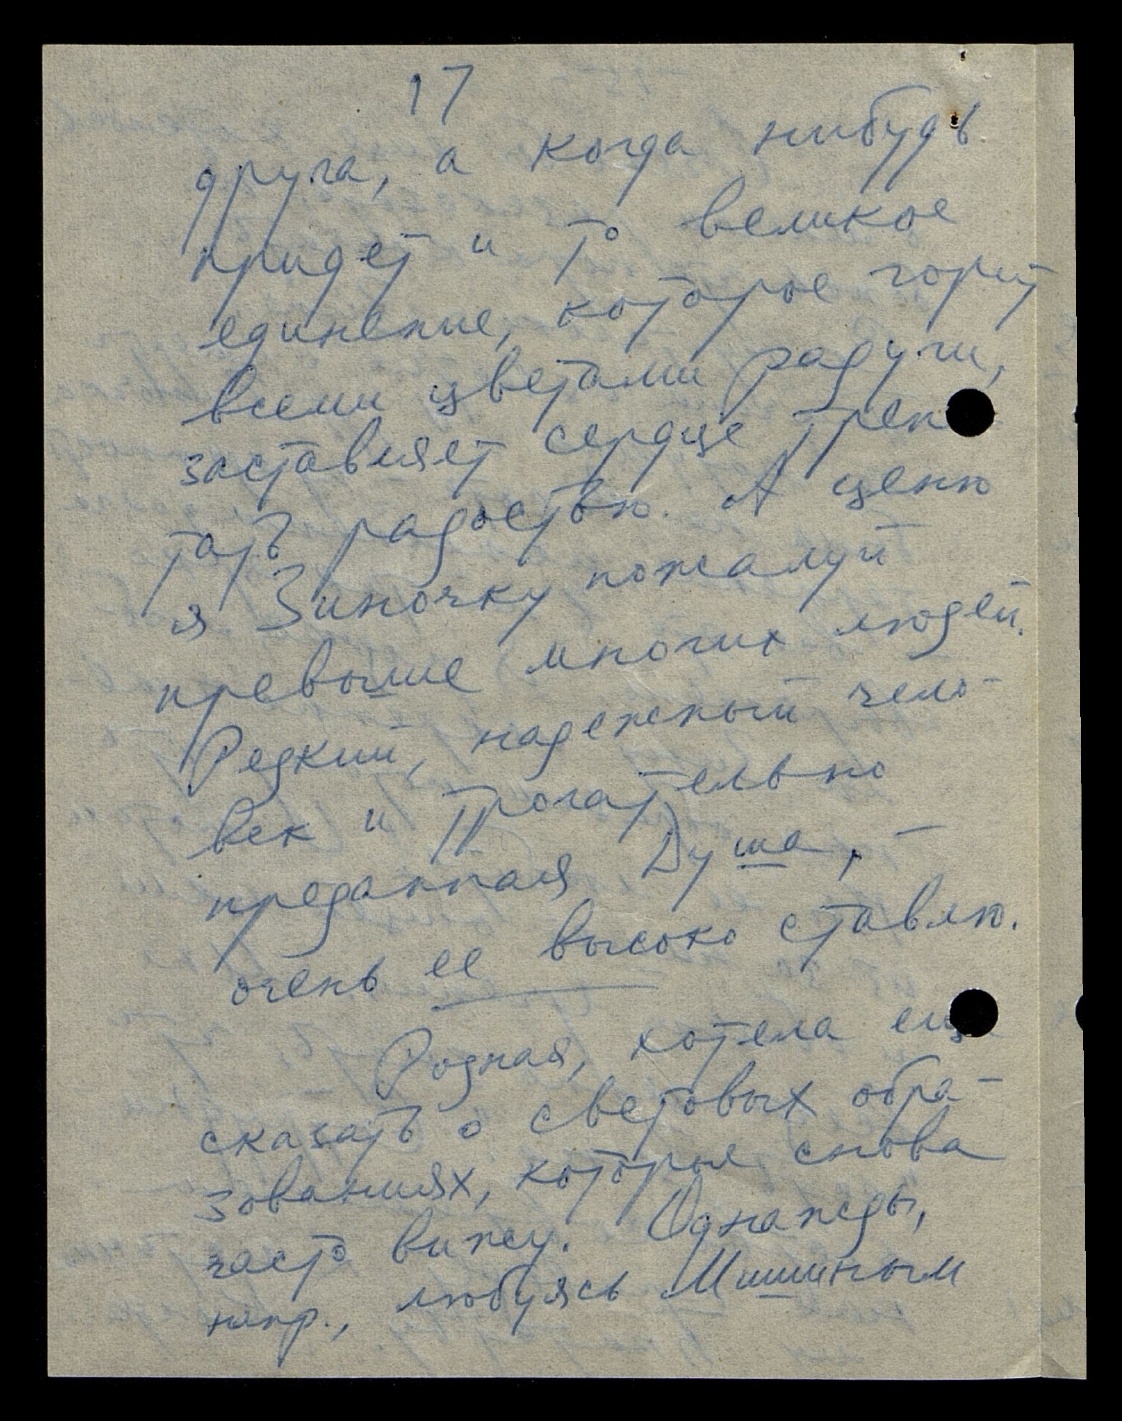 17
друга, а когда нибудь
придет и то великое
единение, которое горит
всеми цветами радуги,
заставляет сердце трепе
тать радостью. А ценю
я Зиночку пожалуй
превыше многих людей.
Редкий, надежный чело-
век и трогательно
преданная Душа, –
очень ее высоко ставлю.
Родная, хотела еще
сказать о световых обра-
зованиях, которые снова
часто вижу. Однажды,
напр., любуясь Мишиным